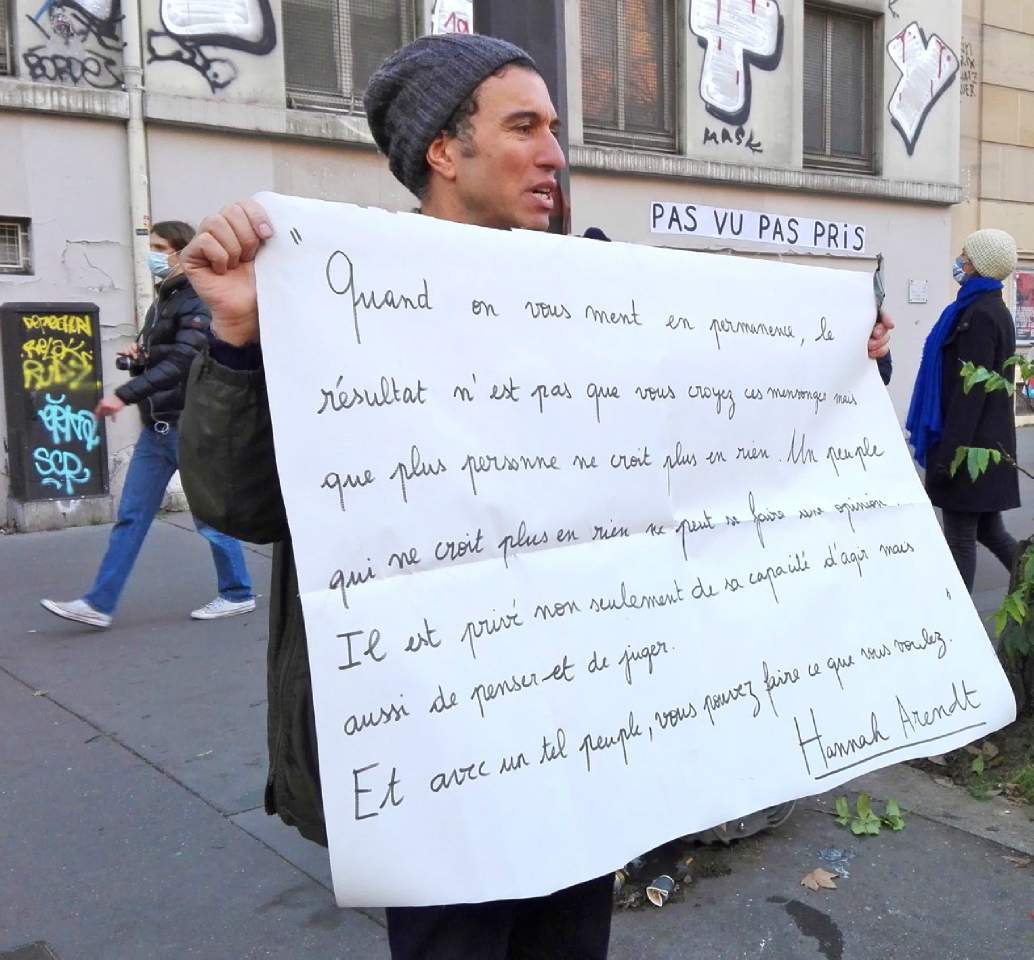 BORDES
10
MASK
PAS VU PAS PRIS
RELAX
SCP
" Quand on vous ment en permanence, le
résultat n'est pas que vous croyez ces mensonges mais
que plus personne ne croit plus en rien. Un peuple
qui ne croit plus en rien ne peut se faire une opinion.
Il est privé non seulement de sa capacité d'agir mais
aussi de penser et de juger.
Et avec un tel peuple, vous pouvez faire ce que vous voulez. "
Hannah Arendt